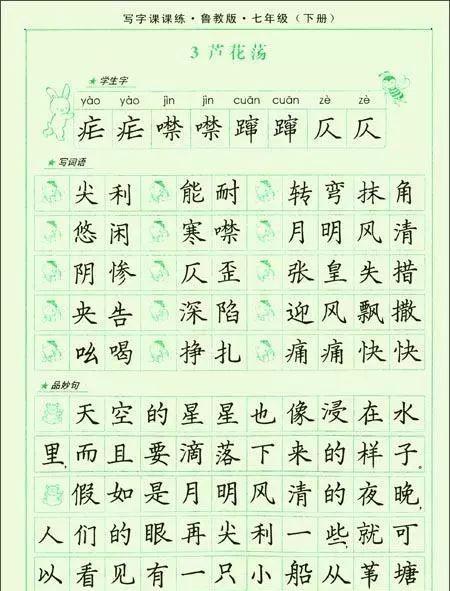 写字课课练·鲁教版·七年级（下册）
3 芦花荡
★学生字
yào yào jìn jìn cuān cuān zè zè
疟 疟 噤 噤 蹿 蹿 仄 仄
★写词语
尖利 能耐 转弯抹角
悠闲 寒噤 月明风清
阴惨 仄歪 张皇失措
央告 深陷 迎风飘撒
吆喝 挣扎 痛痛快快
★品妙句
天空的星星也像浸在水
里，而且要滴落下来的样子。
假如是月明风清的夜晚，
人们的眼再尖利一些，就可
以看见有一只小船从苇塘